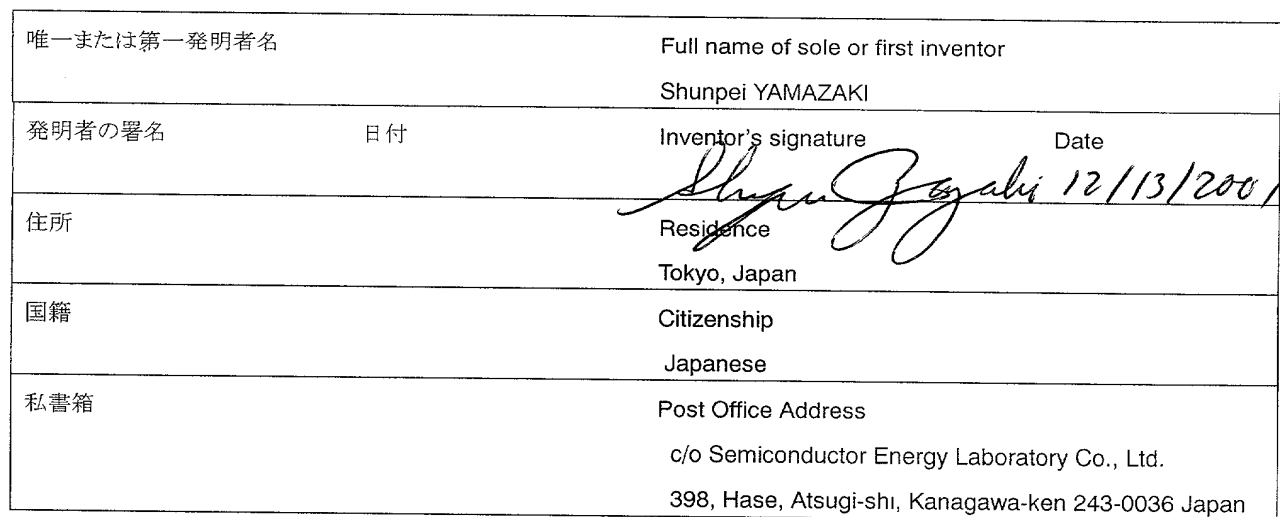 唯一または第一発明者名
Full name of sole or first inventor
Shunpei YAMAZAKI
発明者の署名 日付
Inventor's signature Date
12/13/2001
住所
Residence
Tokyo, Japan
国籍
Citizenship
Japanese
私書箱
Post Office Address
c/o Semiconductor Energy Laboratory Co., Ltd.
398, Hase, Atsugi-shi, Kanagawa-ken 243-0036 Japan